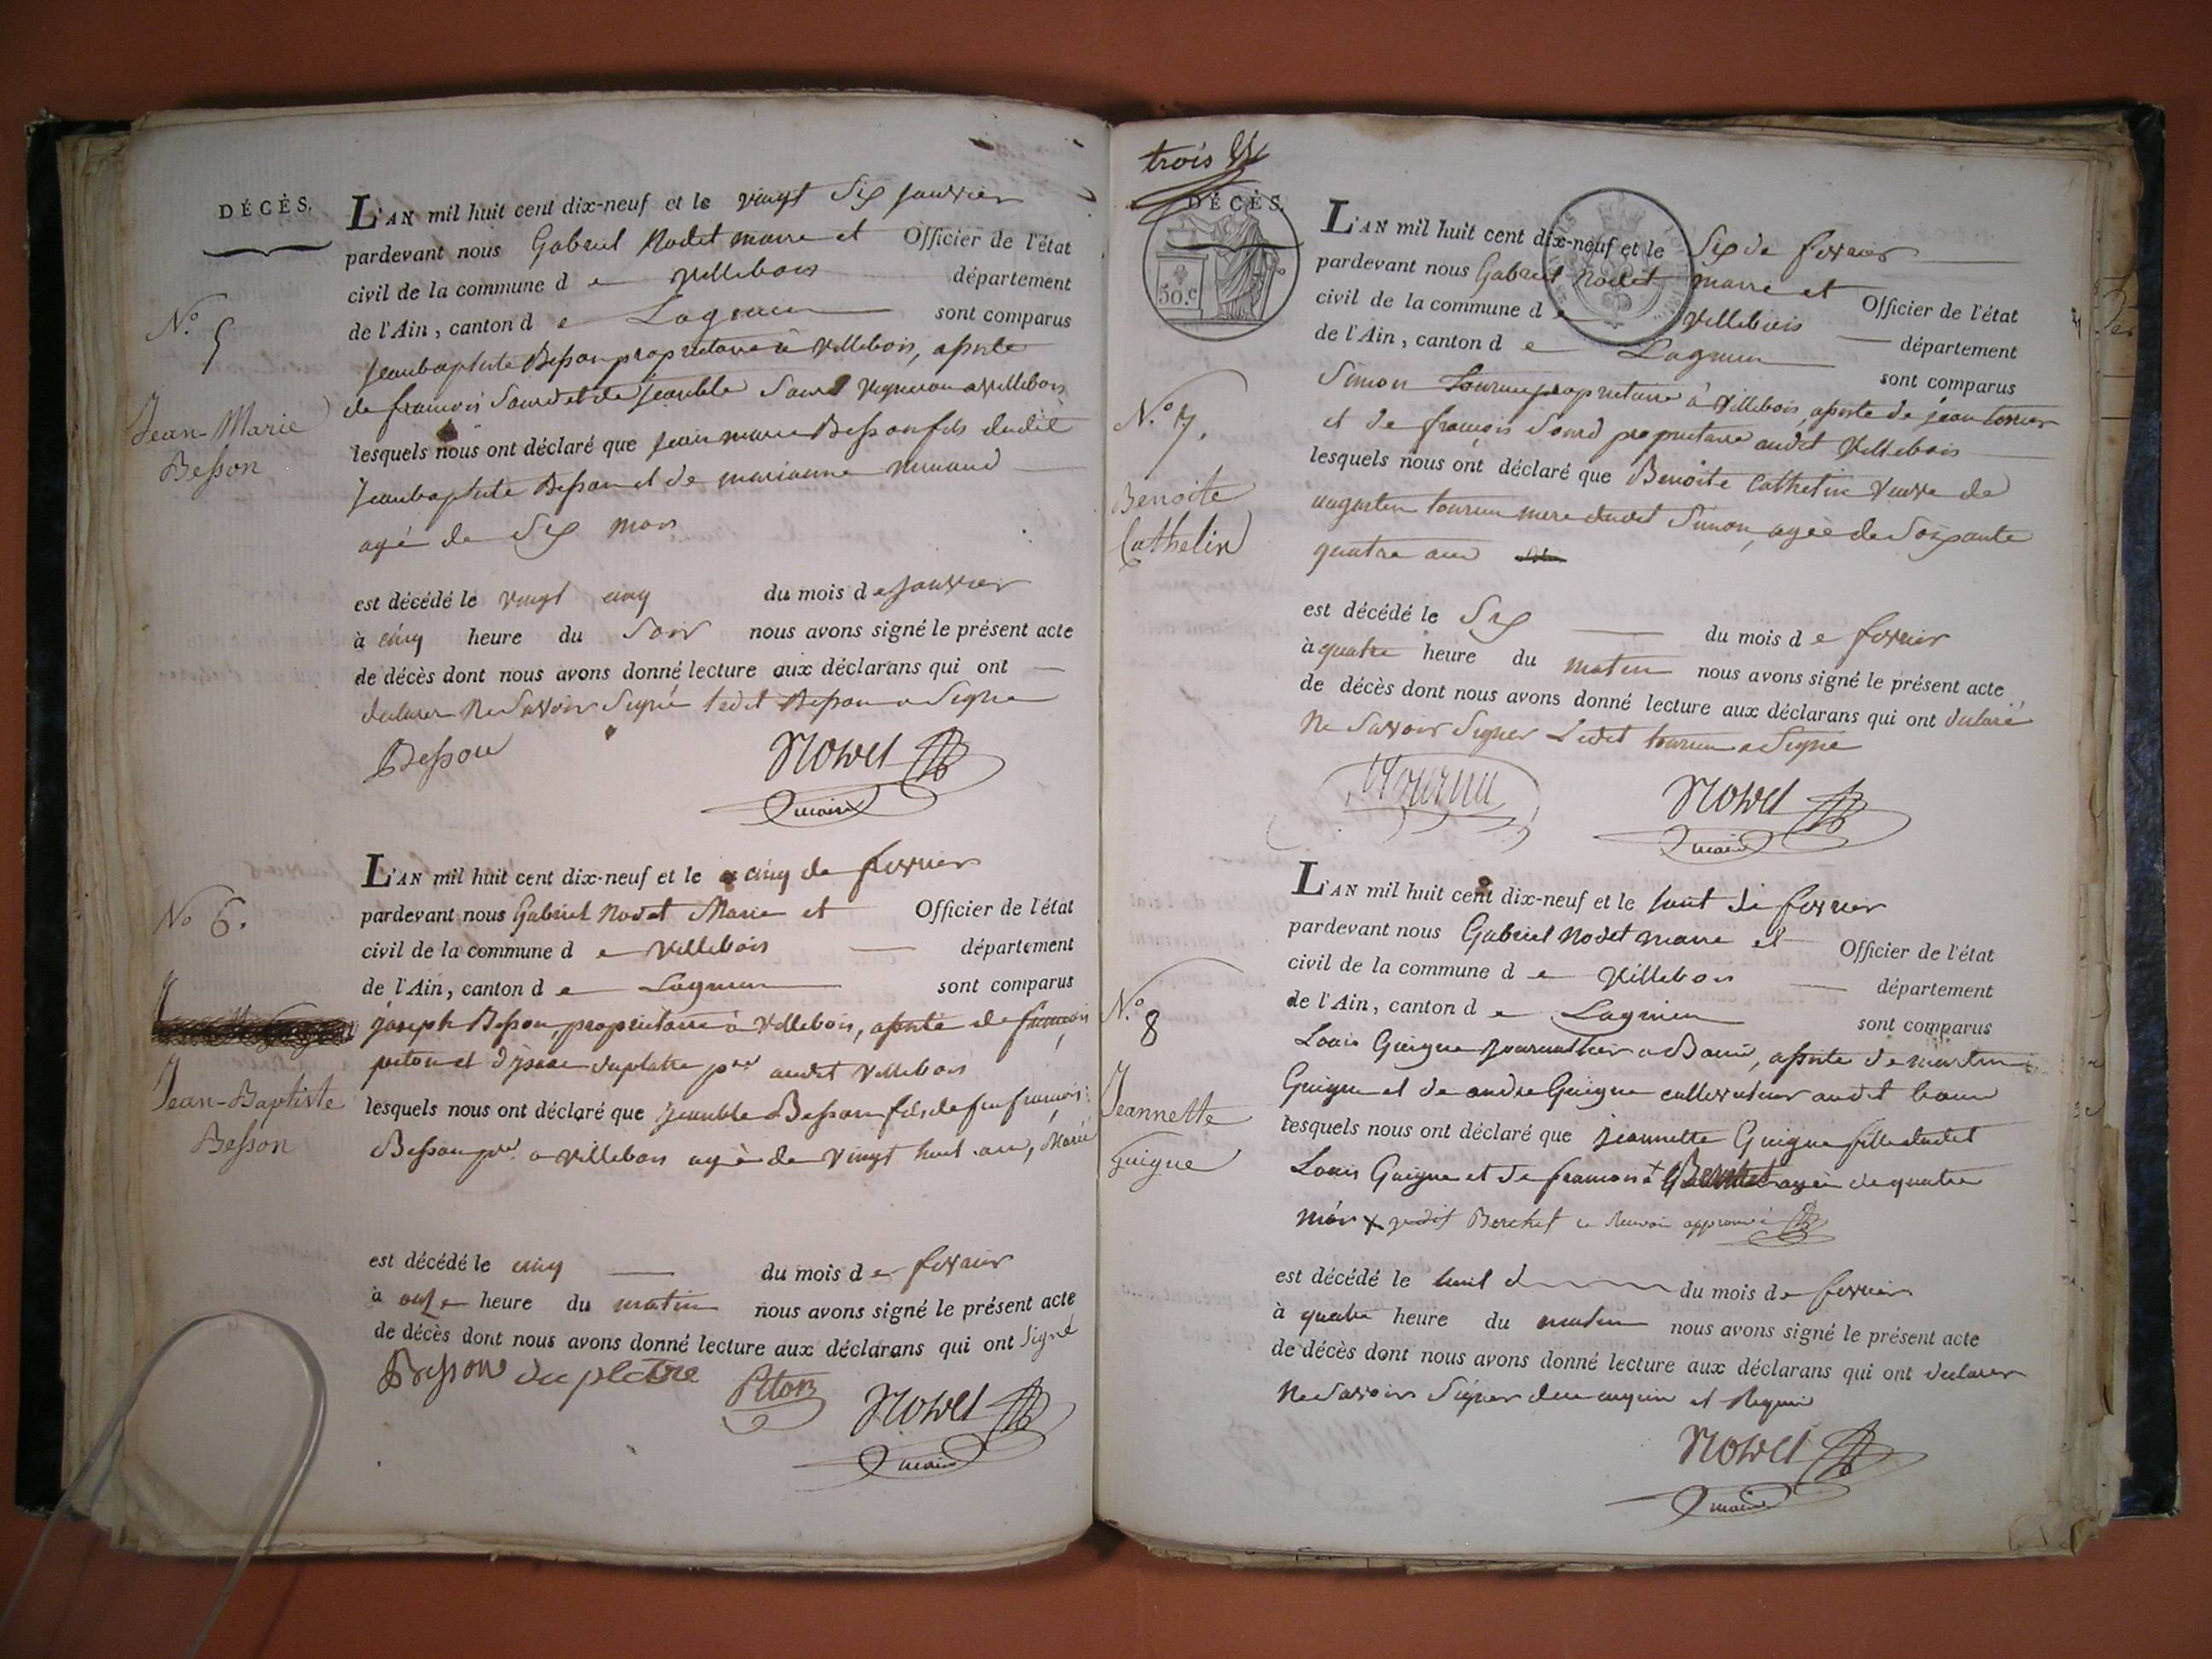 DÉCÈS.
N.° 5
Jean-Marie
Besson
L'AN mil huit cent dix-neuf et le vingt Six janvier
pardevant nous Gabriel Nodet maire et Officier de l'état
civil de la commune d e Villebois département
de l'Ain, canton d e Lagnieu sont comparus
jeanbaptiste Besson proprietaire à Villebois, assisté
de francois Sourd et de jeanble Sourd Vigneron a Villebois
lesquels nous ont déclaré que jean marie Besson fils dudit
jeanbaptiste Besson et de marianne
agé de Six mois
est décédé le vingt cinq du mois de janvier
à cinq heure du Soir nous avons signé le présent acte
de décès dont nous avons donné lecture aux déclarans qui ont
declarer ne Savoir Signé ledit Besson a Signe
Besson Nodet
maire
No 6.
Jean-Baptiste
Besson
L'AN mil huit cent dix-neuf et le cinq de fevrier
pardevant nous Gabriel Nodet Marie et Officier de l'état
civil de la commune d e Villebois département
de l'Ain, canton d e Lagnieu sont comparus
joseph Besson, proprietaire à Villebois, assisté de francois
piton et duplatre pre audit Villebois
lesquels nous ont déclaré que jeanble Besson fils de feu francois
Besson pre a Villebois agè de Vingt huit ans, Marié
est décédé le cinq du mois d e fevrier
à onze heure du matin nous avons signé le présent acte
de décès dont nous avons donné lecture aux déclarans qui ont Signé
Besson duplatre Piton Nodet
maire
trois
DÉCÈS.
50.c
N.° 7.
Benoite
Cathelin
L'AN mil huit cent dix-neuf et le Six de fevrier
pardevant nous Gabriel Nodet maire et Officier de l'état
civil de la commune d e Villebois département
de l'Ain, canton d e Lagnieu sont comparus
Simon Tournu proprietaire à Villebois, assisté de jean
et de françois Sourd proprietaire audit Villebois
lesquels nous ont déclaré que Benoite Cathelin Veuve de
augustin tournu mere dudit Simon, agée de Soixante
quatre ans
est décédé le Six du mois d e fevrier
à quatre heure du matin nous avons signé le présent acte
de décès dont nous avons donné lecture aux déclarans qui ont declaré
ne Savoir Signer Ledit tournu a Signé
Tournu Nodet
maire
N.° 8
Jeannette
Guigue
L'AN mil huit cent dix-neuf et le huit de fevrier
pardevant nous Gabriel Nodet maire et Officier de l'état
civil de la commune d e Villebois département
de l'Ain, canton d e Lagnieu sont comparus
Louis Guigue journallier a Bouis, assisté de martin
Guigue et de andré Guigue cultivateur audit bouis
lesquels nous ont déclaré que jeannette Guigue fille dudit
Louis Guigue et de francoise agée de quatre
mois × Berchet ce renvoi approuvé
est décédé le huit du mois de fevrier
à quatre heure du matin nous avons signé le présent acte
de décès dont nous avons donné lecture aux déclarans qui ont declarer
ne Savoir Signer de ce enquis et Requis
Nodet
maire